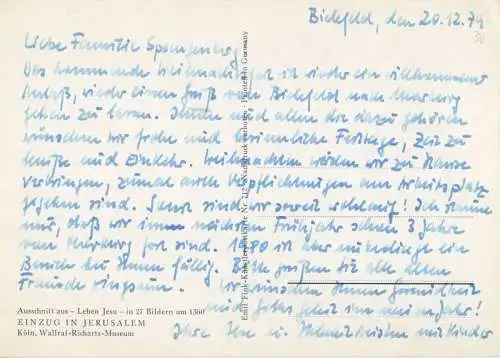 Bielefeld, den 20.12.79
Liebe Familie Spangenberg,
Das kommende Weihnachtsfest ist wieder ein willkommener
Anlaß, wieder einen Gruß von Bielefeld nach Marburg
gehen zu lassen. Ihnen und allen die dazu gehören
wünschen wir frohe und besinnliche Festtage, Zeit zu
Muße und Einkehr. Weihnachten werden wir zu Hause
verbringen, zumal auch Verpflichtungen am Arbeitsplatz
gegeben sind. Sonst sind wir soweit wohlauf! Ich staune
nur, daß wir im nächsten Frühjahr schon 3 Jahre
von Marburg fort sind. 1980 ist aber unbedingt ein
Besuch bei Ihnen fällig. Bitte grüßen Sie alle alten
Freunde ringsum. Wir wünschen Ihnen Gesundheit
und Gutes fürs neue Jahr!
Ihre Ilse u. Helmut mit Kinder
Ausschnitt aus – Leben Jesu – in 27 Bildern um 1360
EINZUG IN JERUSALEM
Köln, Wallraf-Richartz-Museum
Emil Fink-Kunstpostkarte Nr. 112 · Nachdruck verboten · Printed in Germany